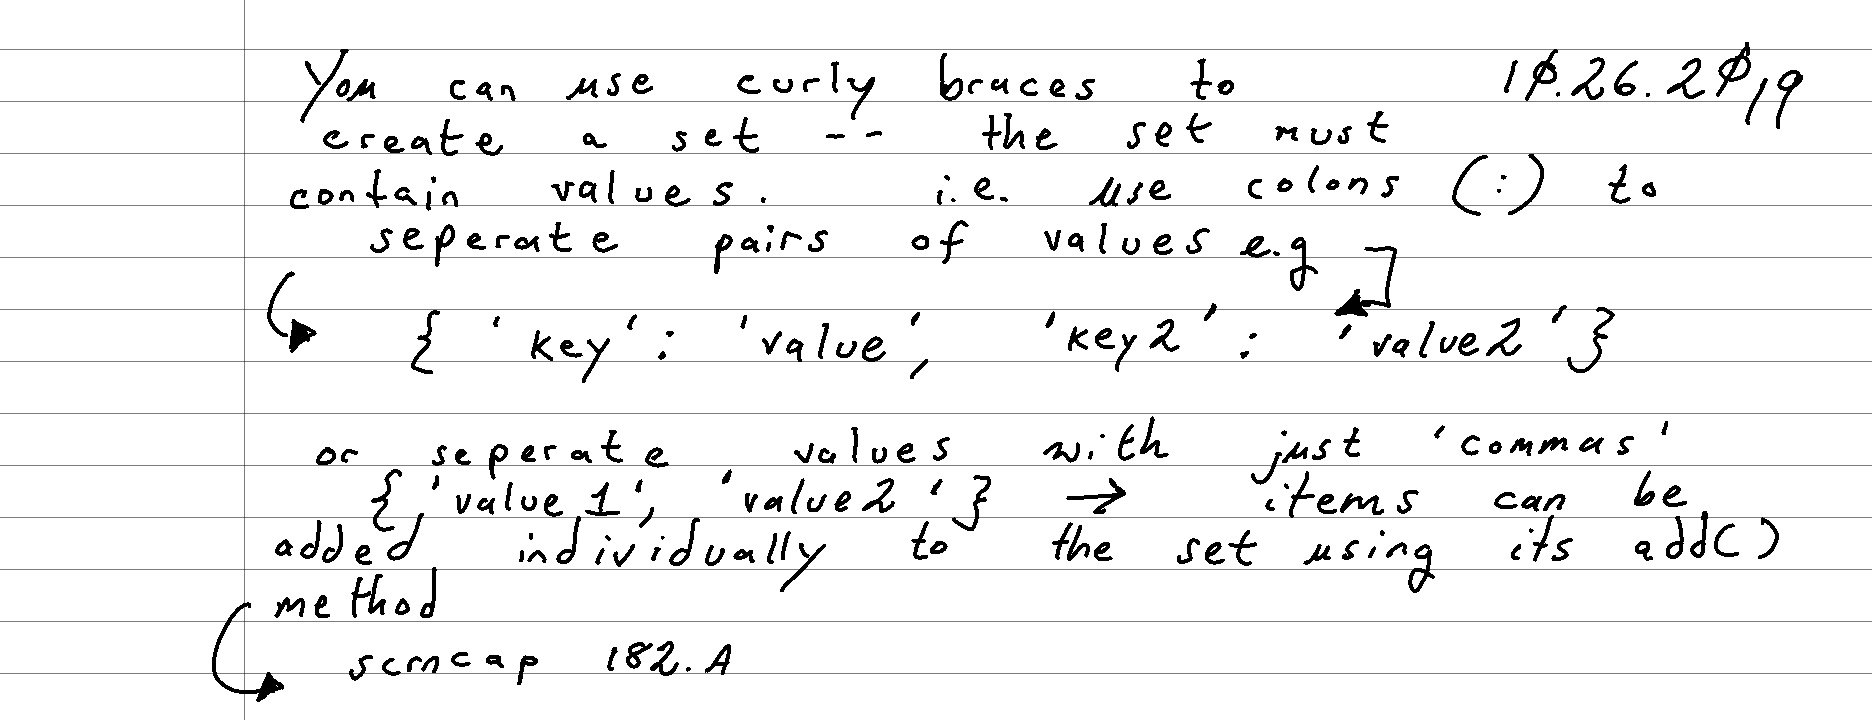 You can use curly braces to 10.26.2019
create a set -- the set must
contain values. i.e. use colons (:) to
seperate pairs of values e.g
{ 'key': 'value', 'key2' : 'value2'}
or seperate values with just 'commas'
{'value1', 'value2'} → items can be
added individually to the set using its add()
method
scrncap 182.A